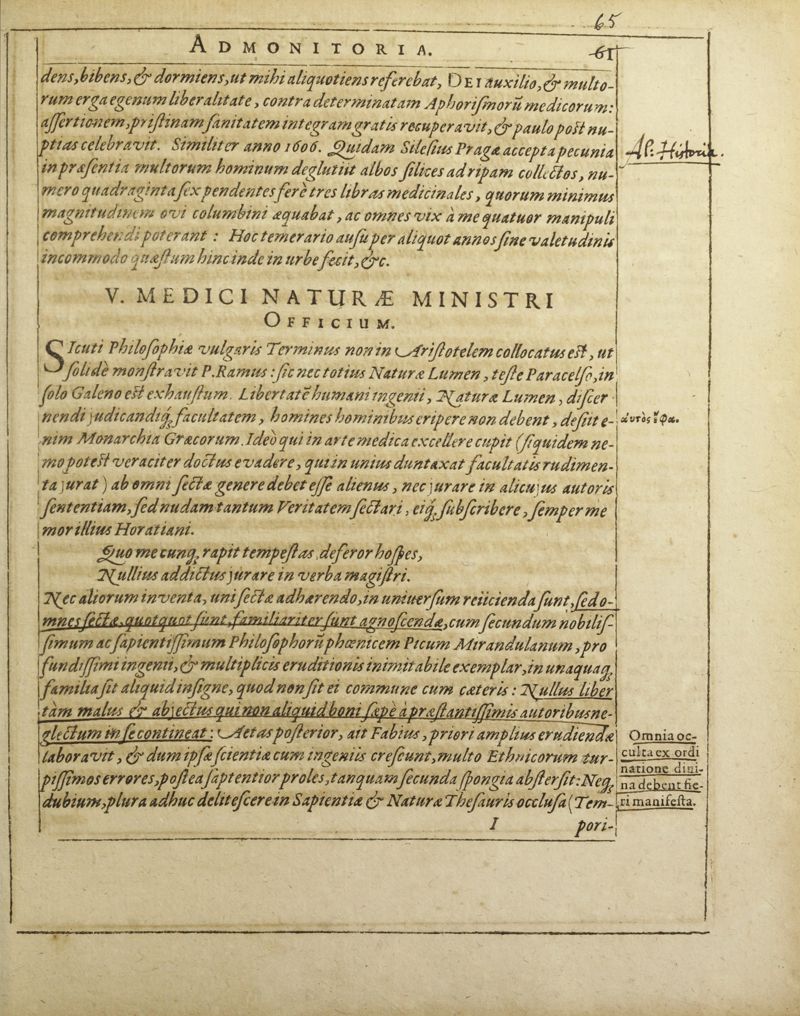 65
ADMONITORIA. 61
dens, bibens, & dormiens, ut mihi aliquotiens referebat, DEI auxilio, & multo-
rum erga egenum liberalitate, contra determinatam Aphorismorũ medicorum:
assertionem, pristinam sanitatem integram gratis recuperavit, & paulo post nu-
ptias celebravit. Similiter anno 1606. Quidam Silesius Pragæ accepta pecunia
in præsentia multorum hominum deglutiit albos silices ad ripam collectos, nu-
mero quadraginta sex pendentes ferè tres libras medicinales, quorum minimus
magnitudinem ovi columbini æquabat, ac omnes vix à me quatuor manipuli
comprehendi poterant: Hoc temerario ausu per aliquot annos sine valetudinis
incommodo quæstum hinc inde in urbe fecit, &c.
Al: Historia.
V. MEDICI NATURÆ MINISTRI
OFFICIUM.
SIcuti Philosophiæ vulgaris Terminus non in Aristotelem collocatus est, ut
solidè monstravit P. Ramus: sic nec totius Naturæ Lumen, teste Paracelso, in
solo Galeno est exhaustum. Libertatẽ humani ingenii, Naturæ Lumen, discer-
nendi judicandiq; facultatem, homines hominibus eripere non debent, desiit e-
nim Monarchia Græcorum. Ideò qui in arte medica excellere cupit (siquidem ne-
mo potest veraciter doctus evadere, qui in unius duntaxat facultatis rudimen-
ta jurat) ab omni sectæ genere debet esse alienus, nec jurare in alicujus autoris
sententiam, sed nudam tantum Veritatem sectari, eiq; subscribere, semper me
mor illius Horatiani.
αὐτὸς ἔφα.
Quo me cunq; rapit tempestas, deferor hospes,
Nullius addictus jurare in verba magistri.
Nec aliorum inventa, uni sectæ adhærendo, in universum reiicienda sunt, sed o-
mnes sectæ, quot quot sunt, familiariter sunt agnoscendæ, cum secundum nobilis-
simum ac sapientissimum Philosophorũ phœnicem Picum Mirandulanum, pro
fundissimi ingenii, & multiplicis eruditionis inimitabile exemplar, in unaquaq;
familia sit aliquid insigne, quod non sit ei commune cum cæteris: Nullus liber
tàm malus & abjectus qui non aliquid boni sæpè à præstantissimis autoribus ne-
glectum in se contineat: Aetas posterior, ait Fabius, priori amplius erudiendæ
laboravit, & dum ipsæ scientiæ cum ingeniis crescunt, multo Ethnicorum tur-
pissimos errores, postea sapientior proles, tanquam secunda spongia abstersit: Neq;
dubium, plura adhuc delitescere in Sapientiæ & Naturæ Thesauris occlusa (Tem-
Omnia oc-
culta ex ordi
natione divi-
na debent fie-
ri manifesta.
I pori-